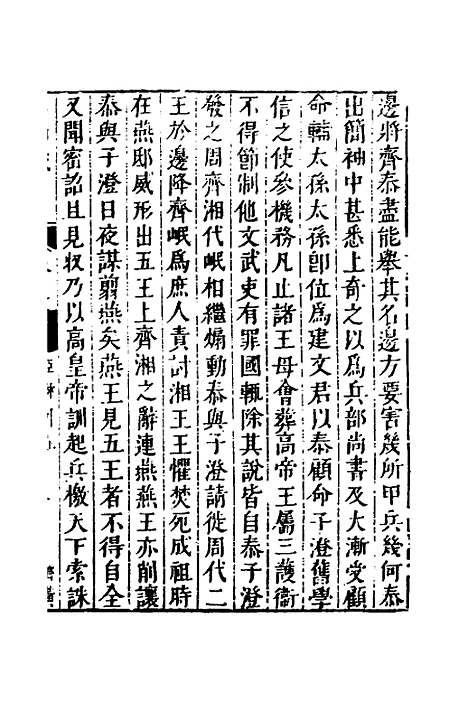 邊將齊泰盡能舉其名邊方要害幾所甲兵幾何泰
出簡袖中甚悉上奇之以為兵部尚書及大漸受顧
命輔太孫太孫卽位為建文君以泰顧命子澄舊學
信之使參機務凡止諸王毋會葬高帝王屬三護衞
不得節制他文武吏有罪國輒除其說皆自泰子澄
發之周齊湘代岷相繼煽動泰與子澄請徙周代二
王於邊降齊岷爲庶人責討湘王王懼焚死成祖時
在燕邸威形出五王上齊湘之辭連燕燕王亦削讓
泰與子澄日夜謀翦燕矣燕王見五王者不得自全
又聞密詔且見收乃以高皇帝訓起兵檄天下索誅
齊黃